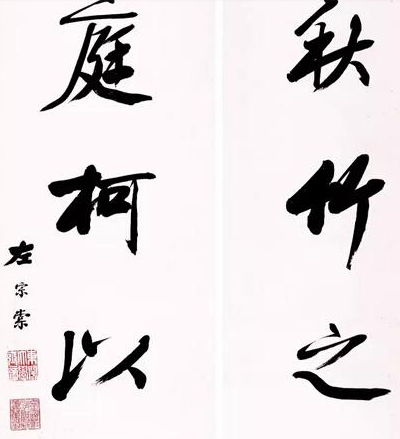 秋竹之
庭柯以
左宗棠